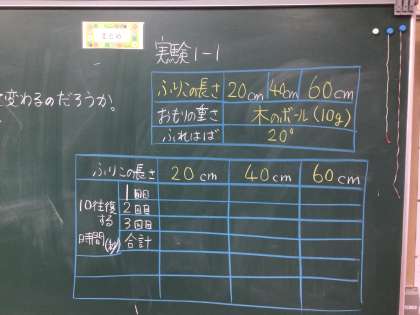 まとめ
変わるのだろうか。
実験1-1
ふりこの長さ 20cm 40cm 60cm
おもりの重さ 木のボール(10g)
ふれはば 20°
ふりこの長さ 20cm 40cm 60cm
1回目
10往復 2回目
する 3回目
時間(秒) 合計